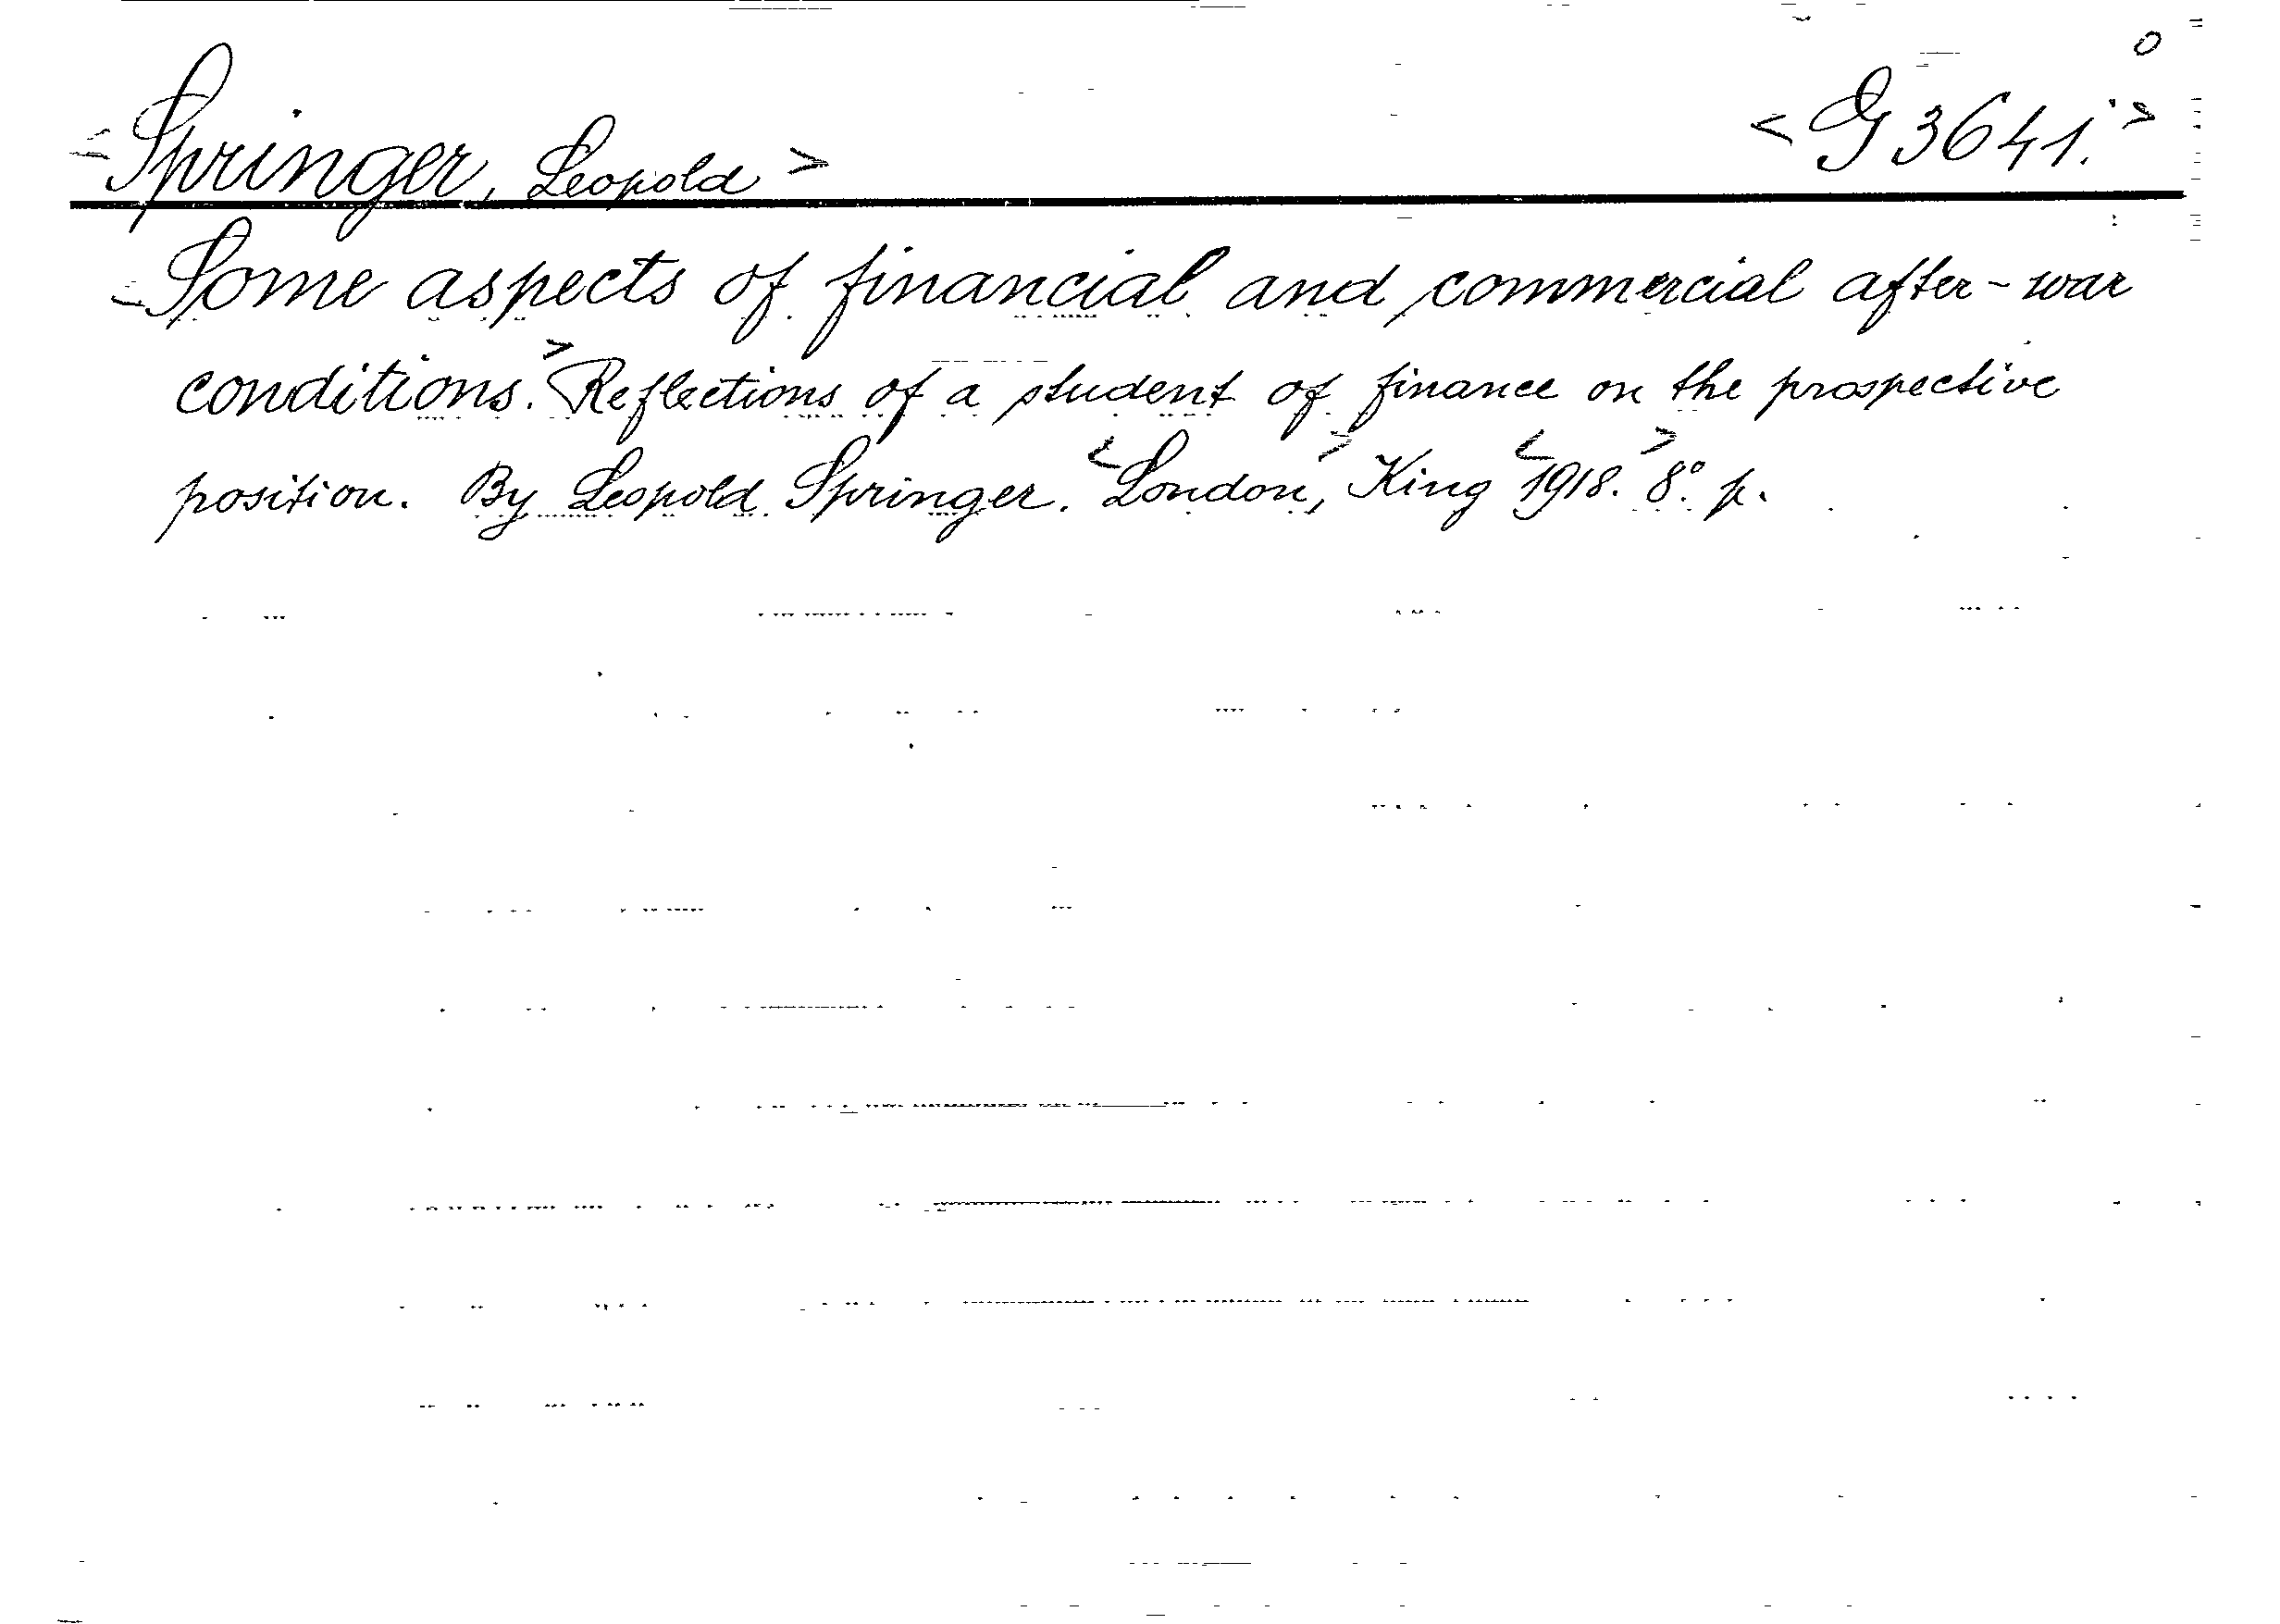 <Springer, Leopold> <G 3641.>
<Some aspects of financial and commercial after-war
conditions.> Reflections of a student of finance on the prospective
position. By Leopold Springer. <London,> King <1918.> 8° p.